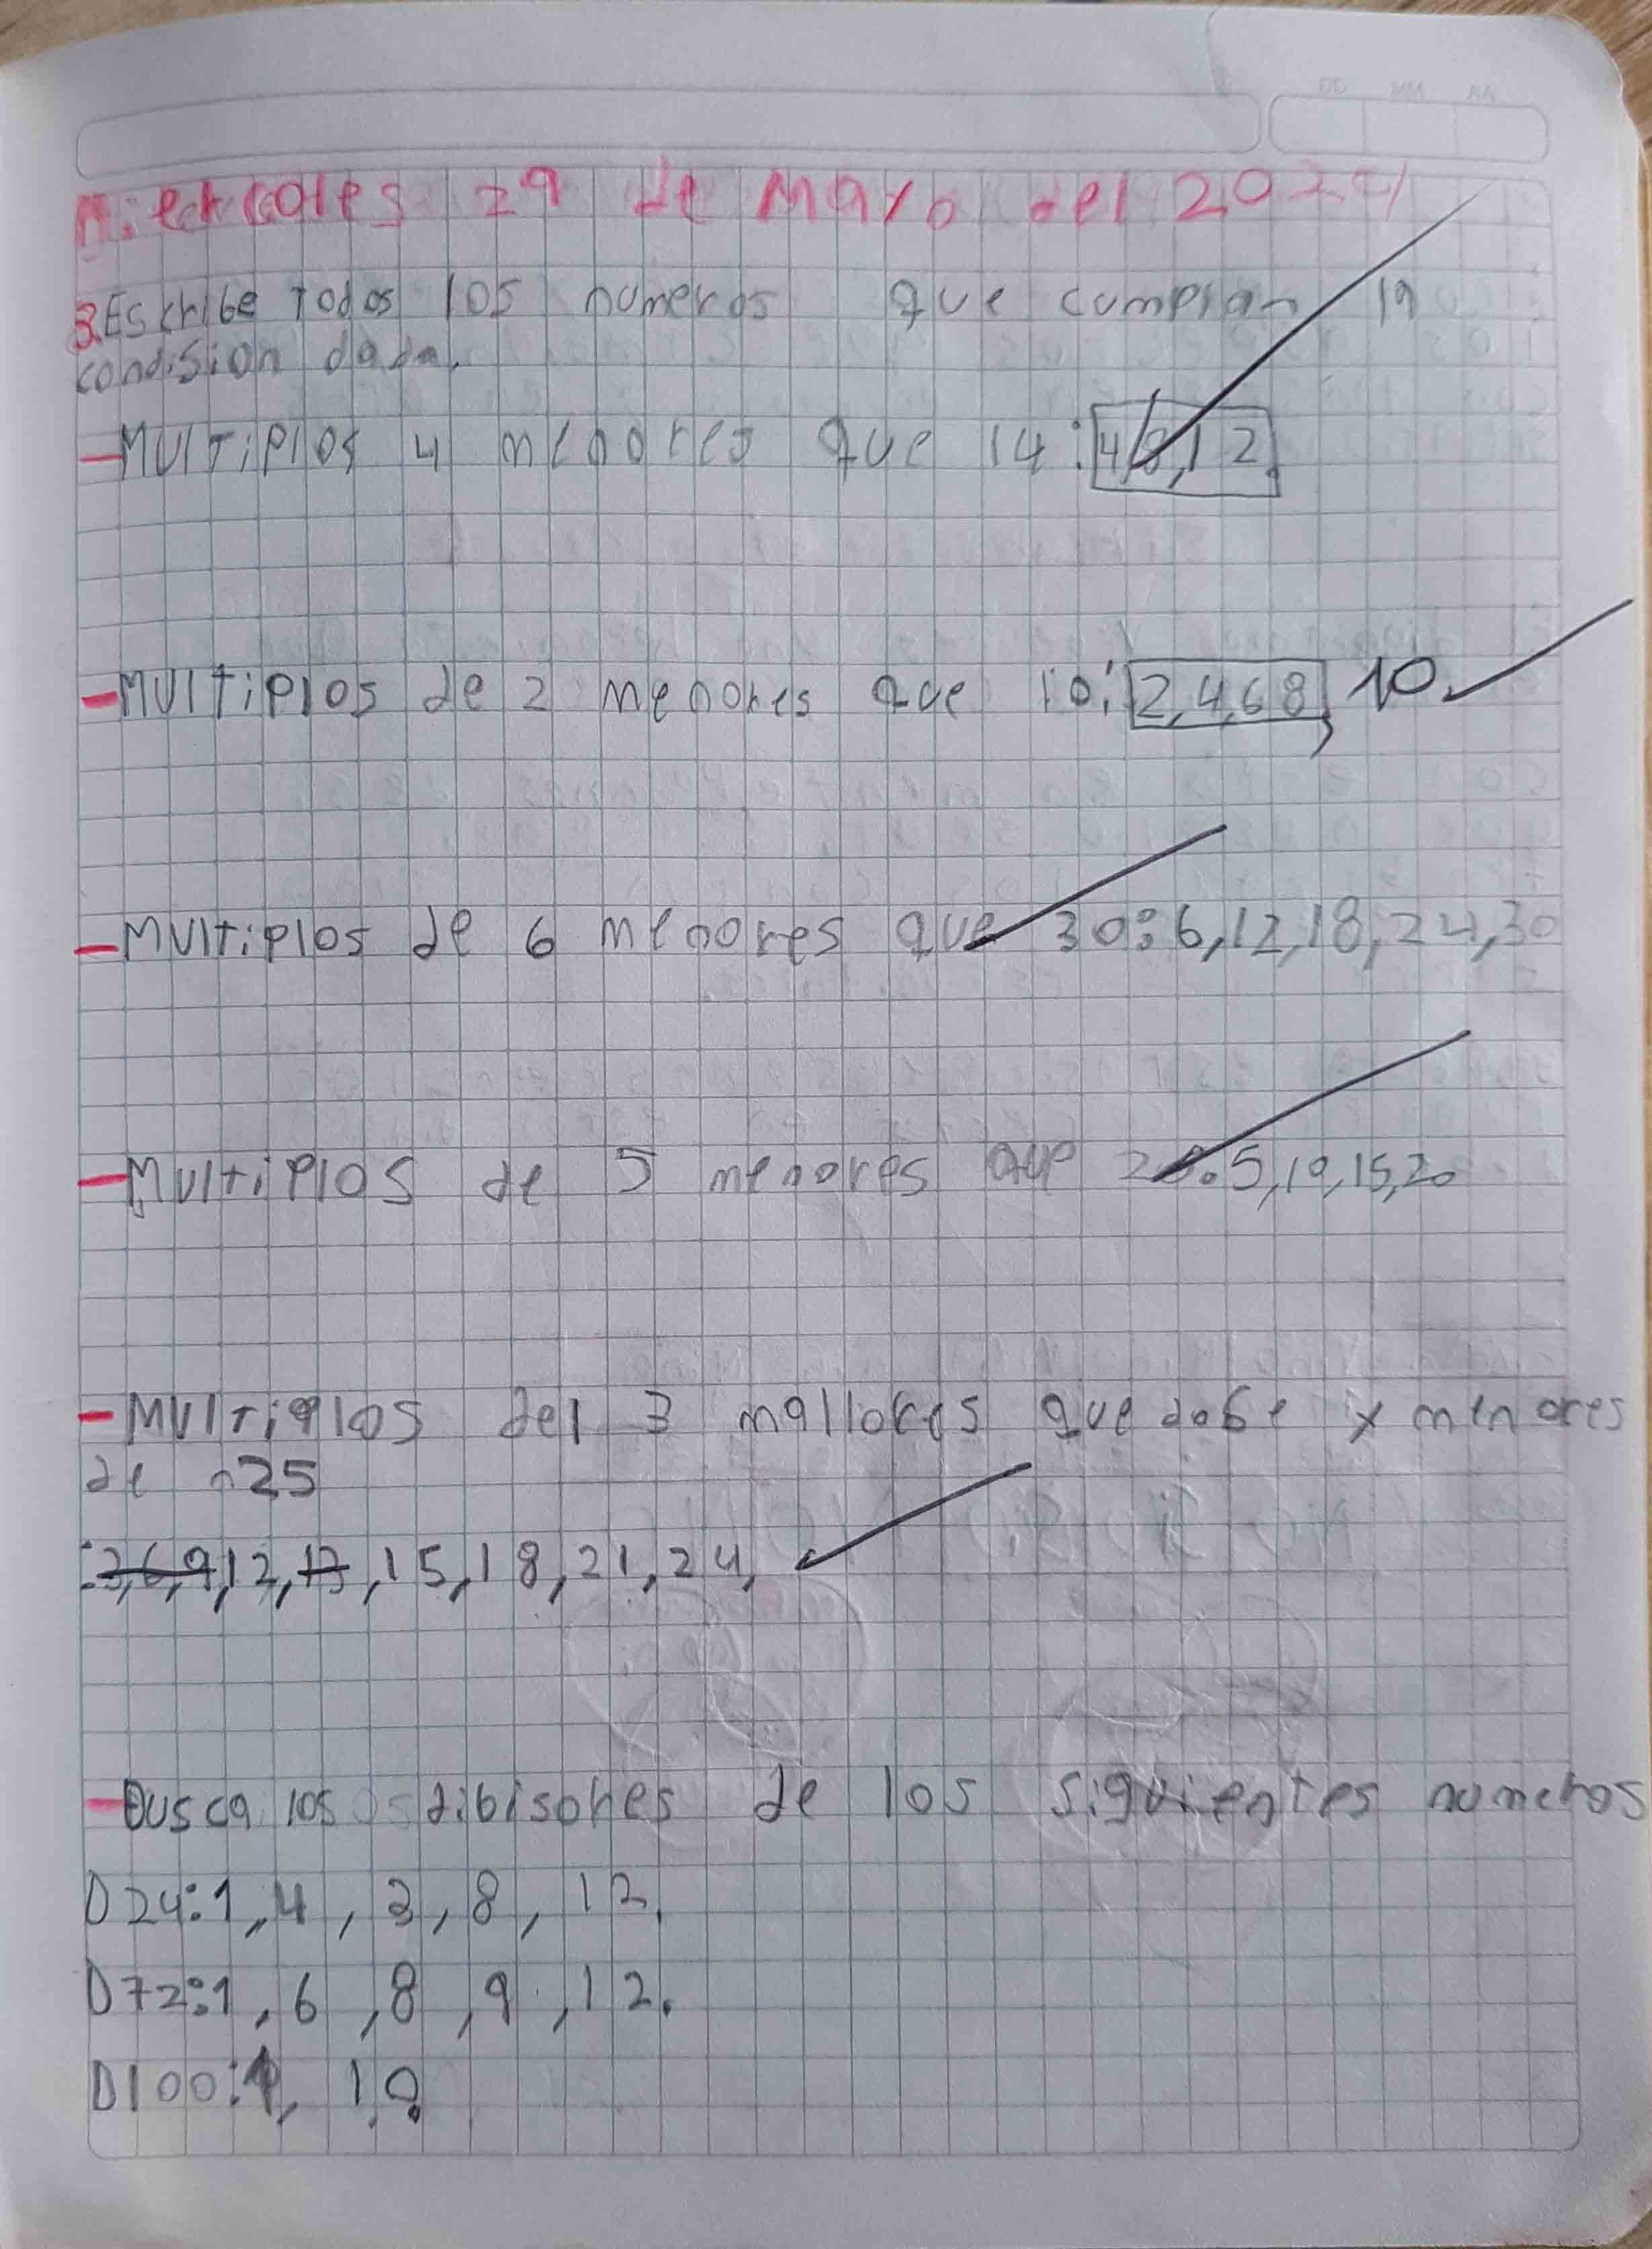 DD MM AA
Miercoles 29 de Mayo del 2024
3.Escribe todos los numeros que cumplan la
condision dada.
-Multiplos 4 menores que 14:4,8,12.
-Multiplos de 2 menores que 10:2,4,6 8, 10.
-Multiplos de 6 menores que 30:6,12,18,24,30
-Multiplos de 5 menores que 20:5,10,15,20
-Multiplos del 3 mallores que dose y menores
de 25
:3,6,9,12,13,15,18,21,24,
-Busca los dibisores de los siguientes numeros
D24:1,4,3,8,12.
D72:1,6,8,9,12.
D100:1,10.